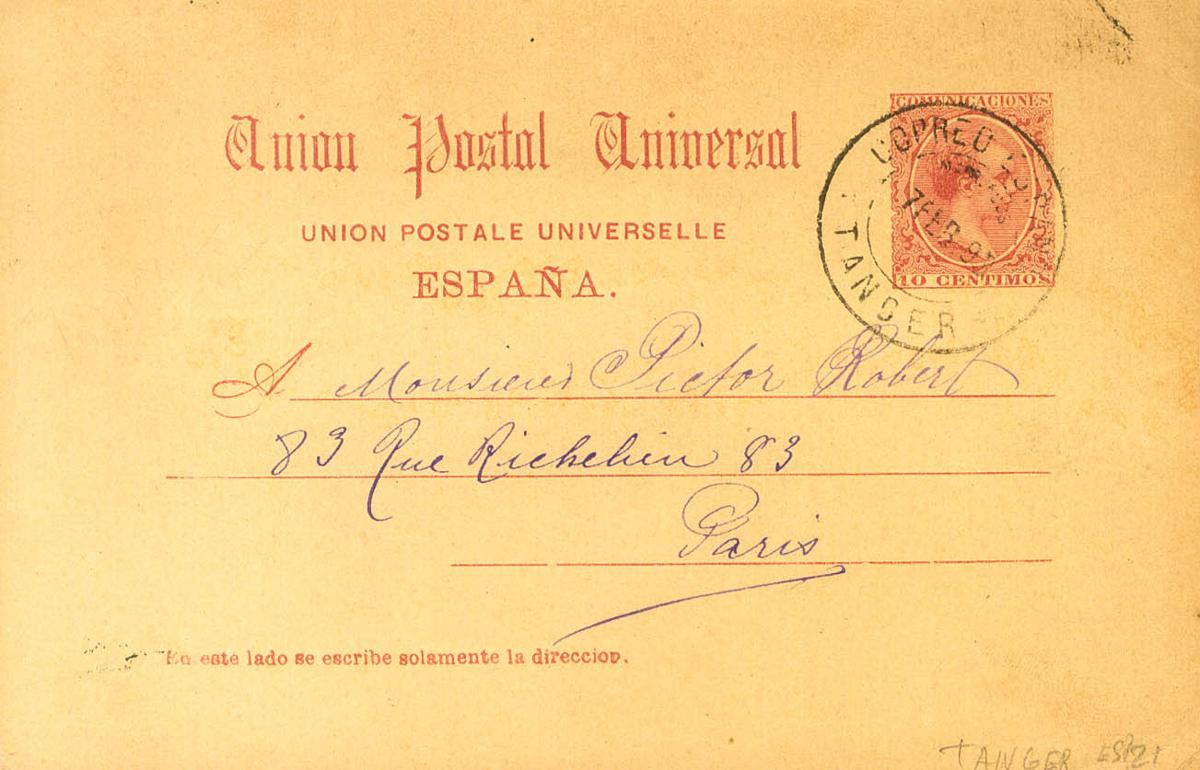 COMUNICACIONES
Union Postal Universal
UNION POSTALE UNIVERSELLE
ESPAÑA.
10 CENTIMOS
CORREO
7 FEB 9
TANGER
A Monsieur Victor Robert
83 Rue Richelieu 83
Paris
En este lado se escribe solamente la direccion.
TANGER